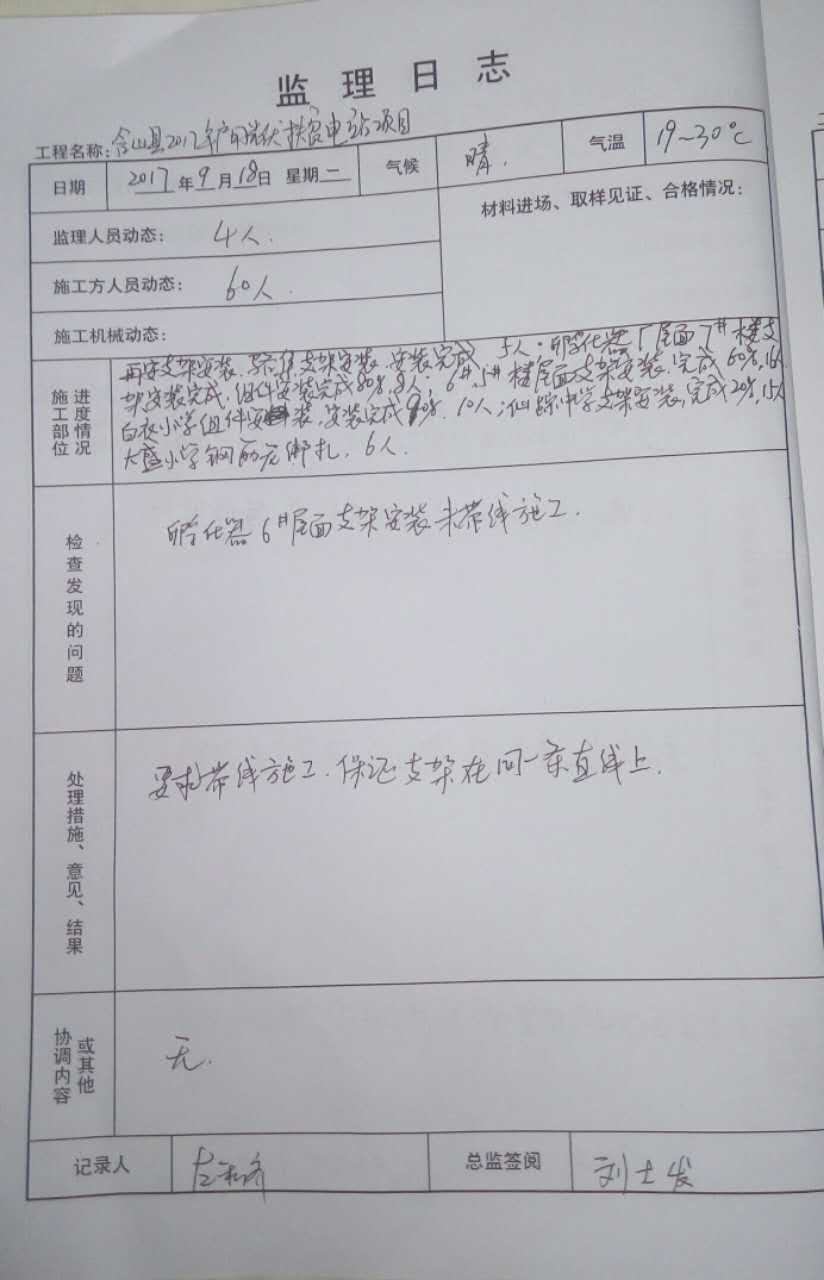 监理日志
工程名称：含山县2017年户用光伏扶贫电站项目
日期 2017年9月18日 星期二 气候 晴. 气温 19~30℃
监理人员动态： 4人. 材料进场、取样见证、合格情况：
施工方人员动态： 60人.
施工机械动态：
施工部位 进度情况
支架安装、支架安装、安装完成 5人.孵化器厂屋面7#楼支
架安装完成,组件安装完成80%,8人. 6#、5#楼屋面支架安装.完成60%,16人
白衣小学组件安装,安装完成90%. 10人;仙踪中学支架安装,完成20%,15人
大盛小学钢筋绑扎. 6人.
检查发现的问题
孵化器6#屋面支架安装未带线施工.
处理措施、意见、结果
要求带线施工.保证支架在同一条直线上.
协调内容 或其他
无.
记录人 总监签阅 刘士发